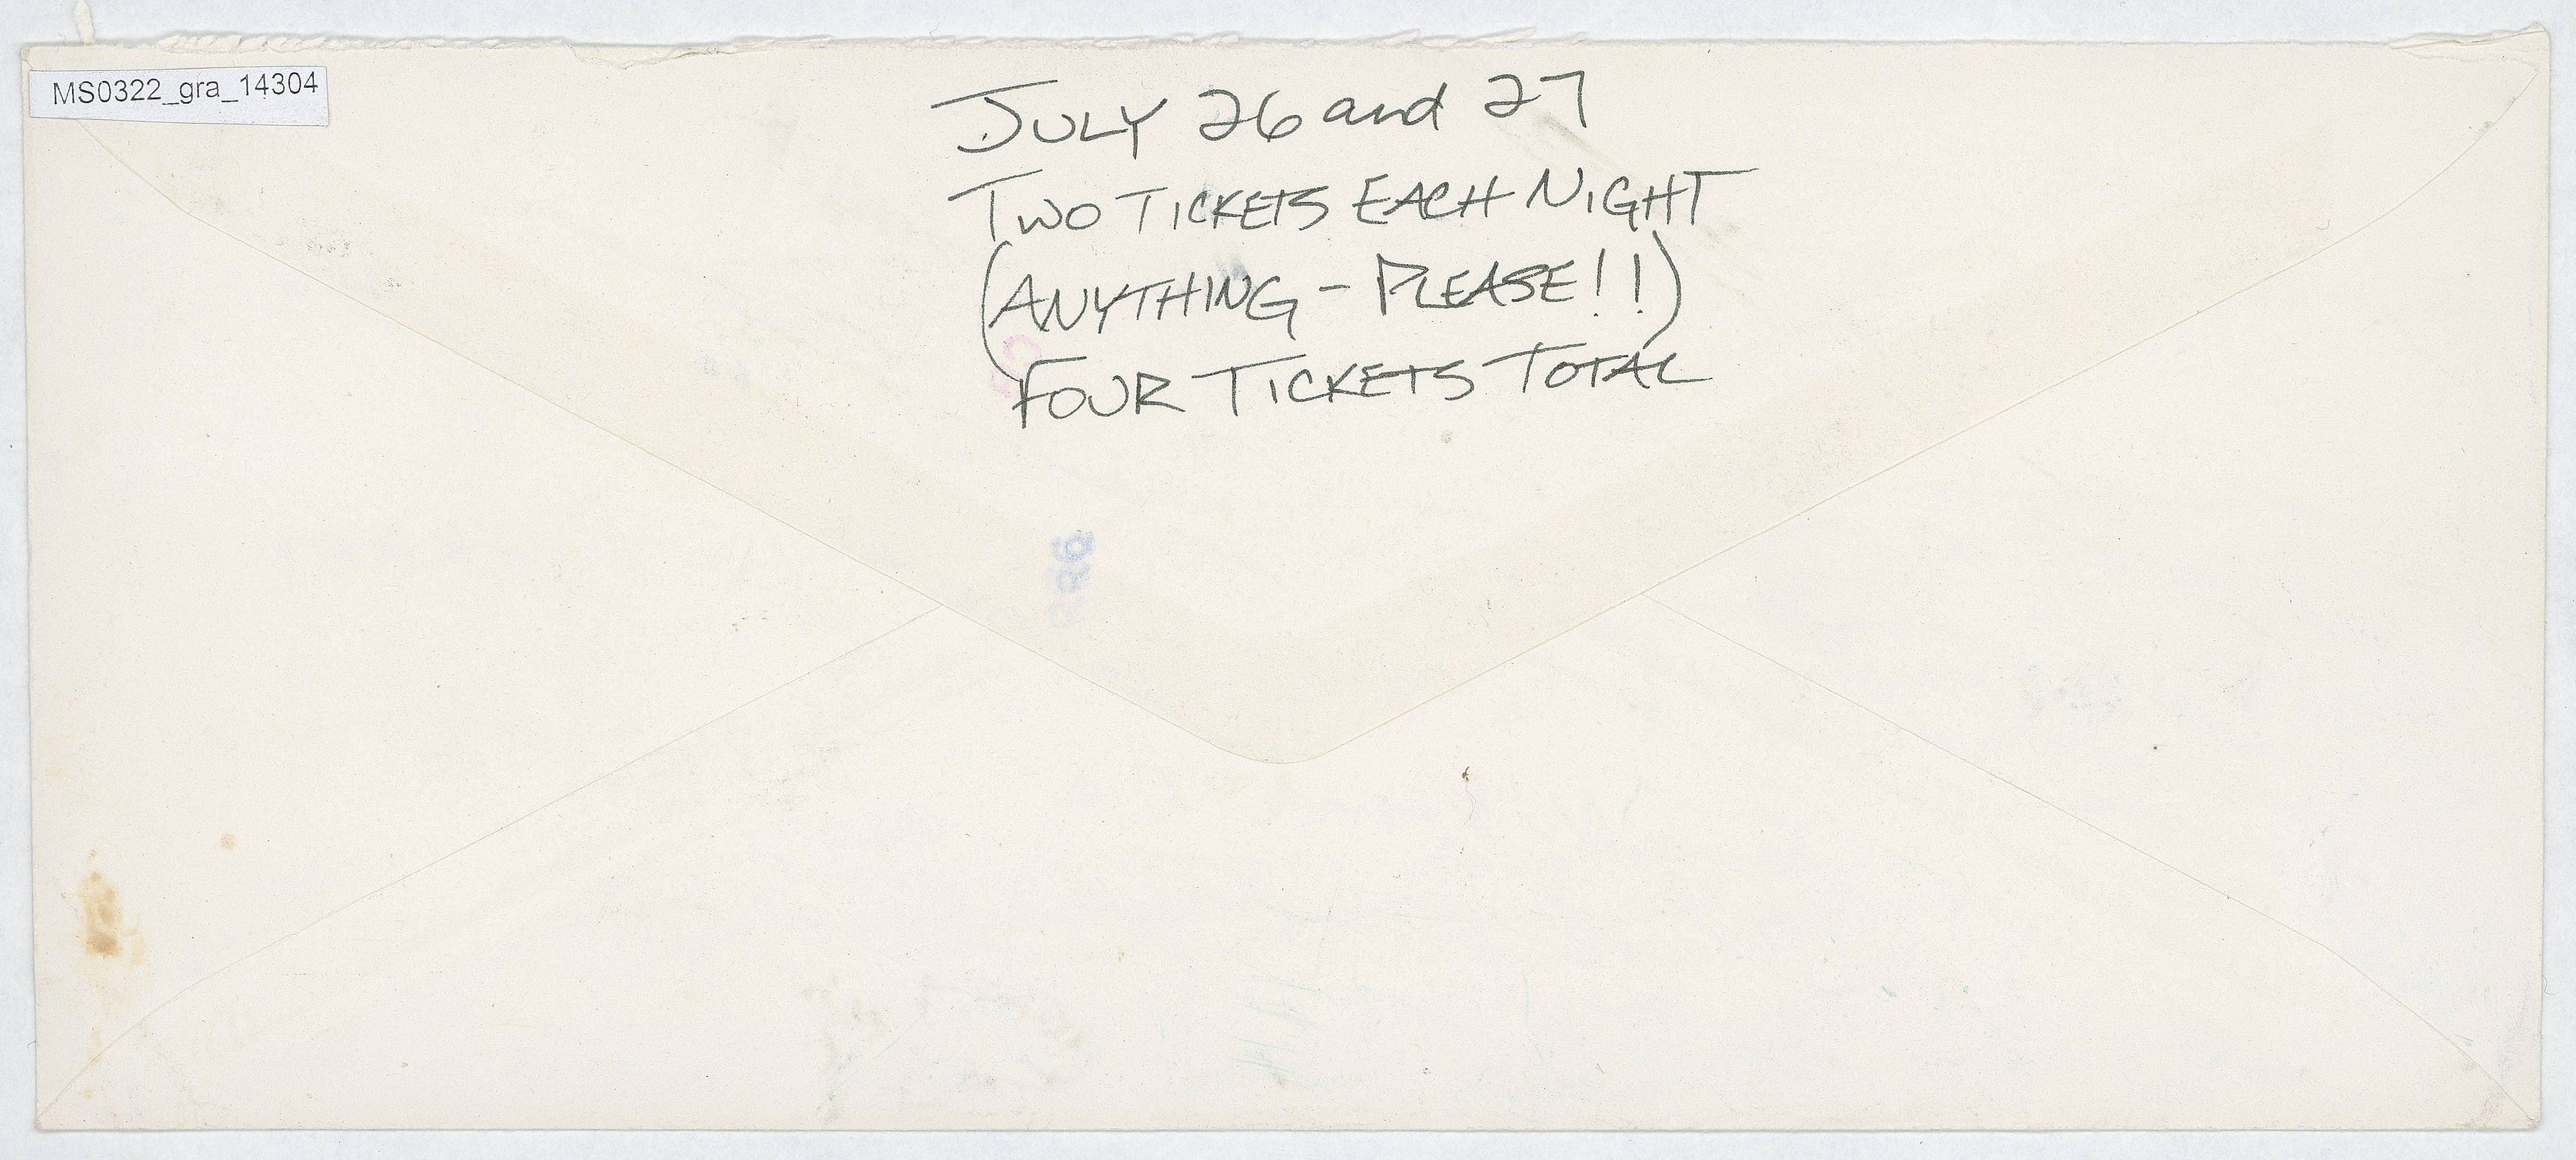 MS0322_gra_14304
JULY 26 and 27
TWO TICKETS EACH NIGHT
(ANYTHING - PLEASE!!)
FOUR TICKETS TOTAL